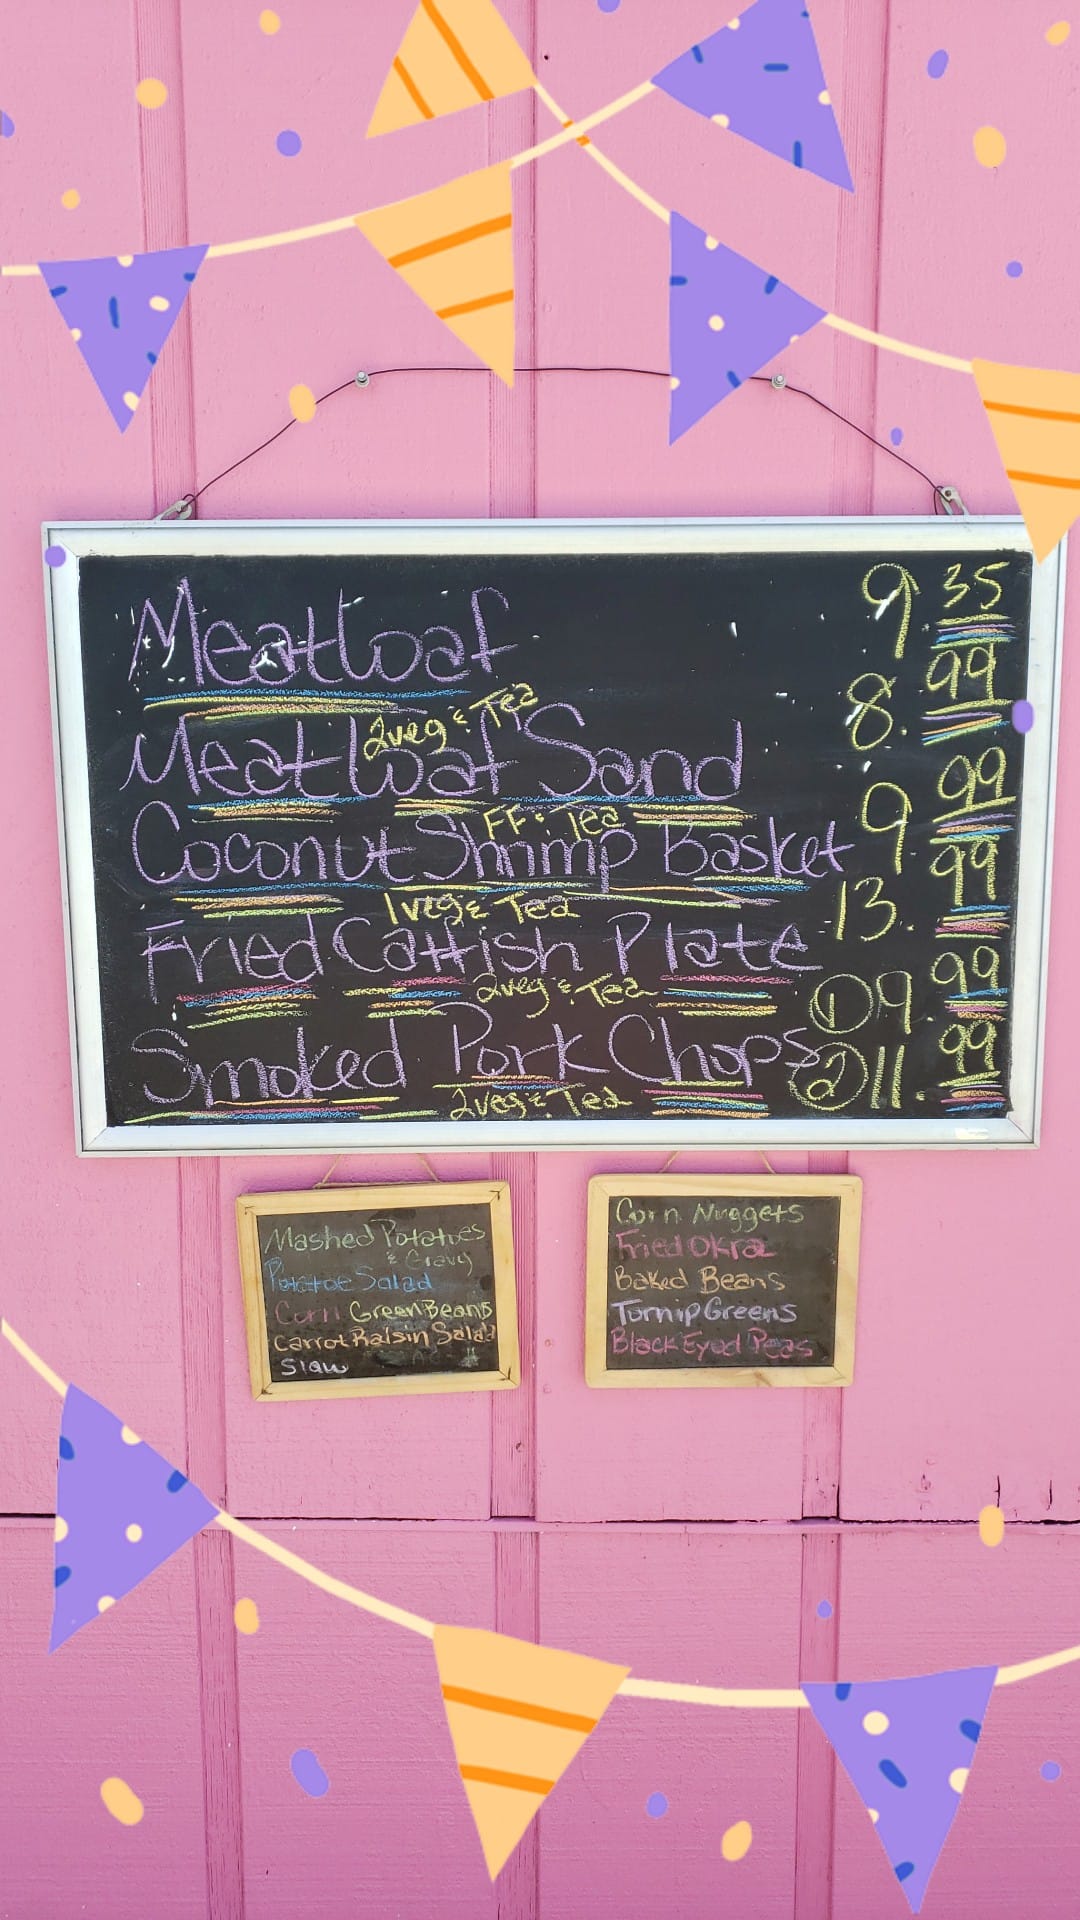 Meatloaf 9.35
2veg & Tea
Meatloaf Sand 8.99
FF & Tea
Coconut Shrimp Basket 9.99
1veg & Tea
Fried Catfish Plate 13.99
2veg & Tea
① 9.99
Smoked Pork Chops ② 11.99
2veg & Tea
Mashed Potatoes
& Gravy
Potatoe Salad
Corn Green Beans
Carrot Raisin Salad
Slaw
Corn Nuggets
Fried Okra
Baked Beans
Turnip Greens
Black Eyed Peas